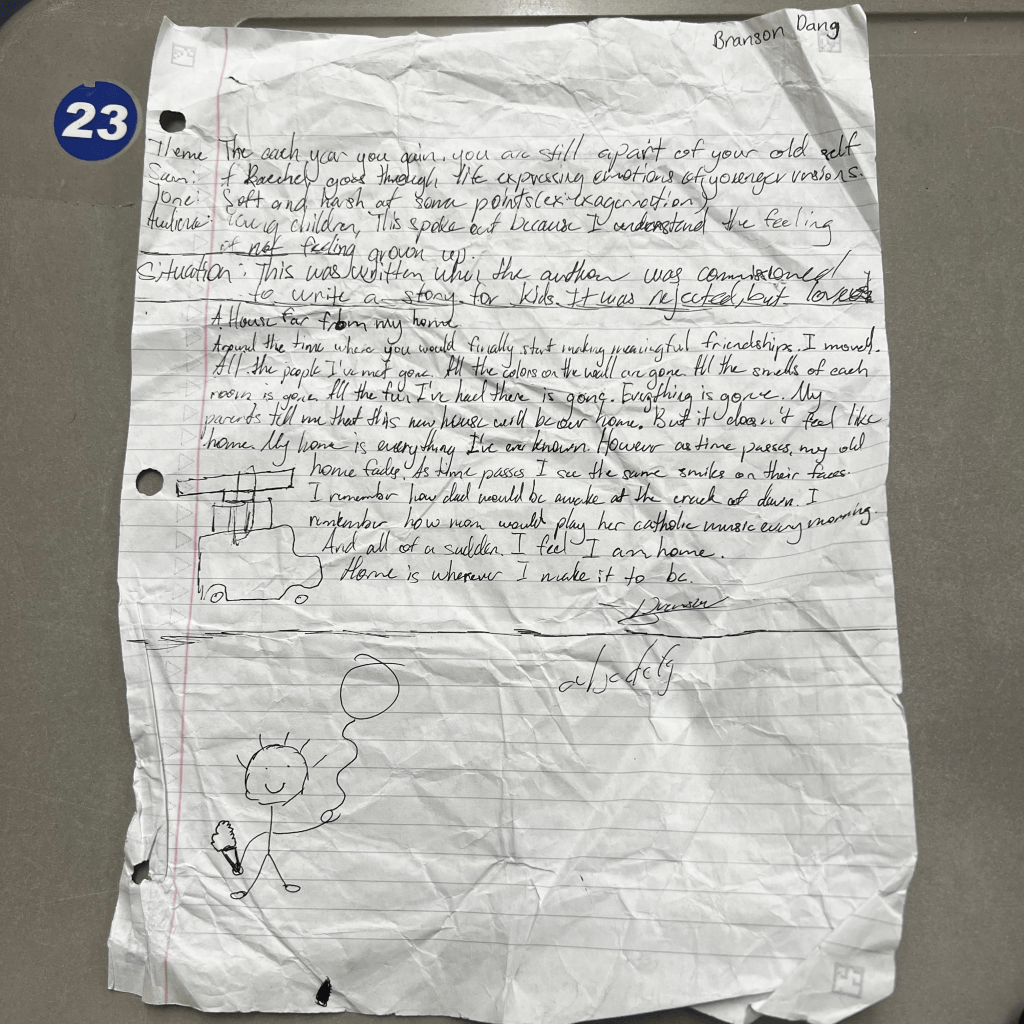 Branson Dang
23
Theme The each year you gain, you are still apart of your old self
Sum: Raechel goes through life expressing emotions of younger versions.
Tone: Soft and harsh at some points (ex: exageration)
Audience: Young children, This spoke out because I understand the feeling
of not feeling grown up.
Situation: This was written when the author was commissioned
to write a story for kids. It was rejected, but loved
A House far from my home
Around the time where you would finally start making meaningful friendships. I moved.
All the people I've met gone. All the colors on the wall are gone. All the smells of each
room is gone. All the fun I've had there is gone. Everything is gone. My
parents tell me that this new house will be our home. But it doesn't feel like
home. My home is everything I've ever known. However as time passes, my old
home fades. As time passes I see the same smiles on their faces.
I remember how dad would be awake at the crack of dawn. I
remember how mom would play her catholic music every morning
And all of a sudden, I feel I am home.
Home is wherever I make it to be.
Branson
abcdefg